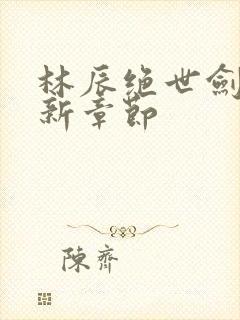 林辰绝世劍
新章節
陳齊